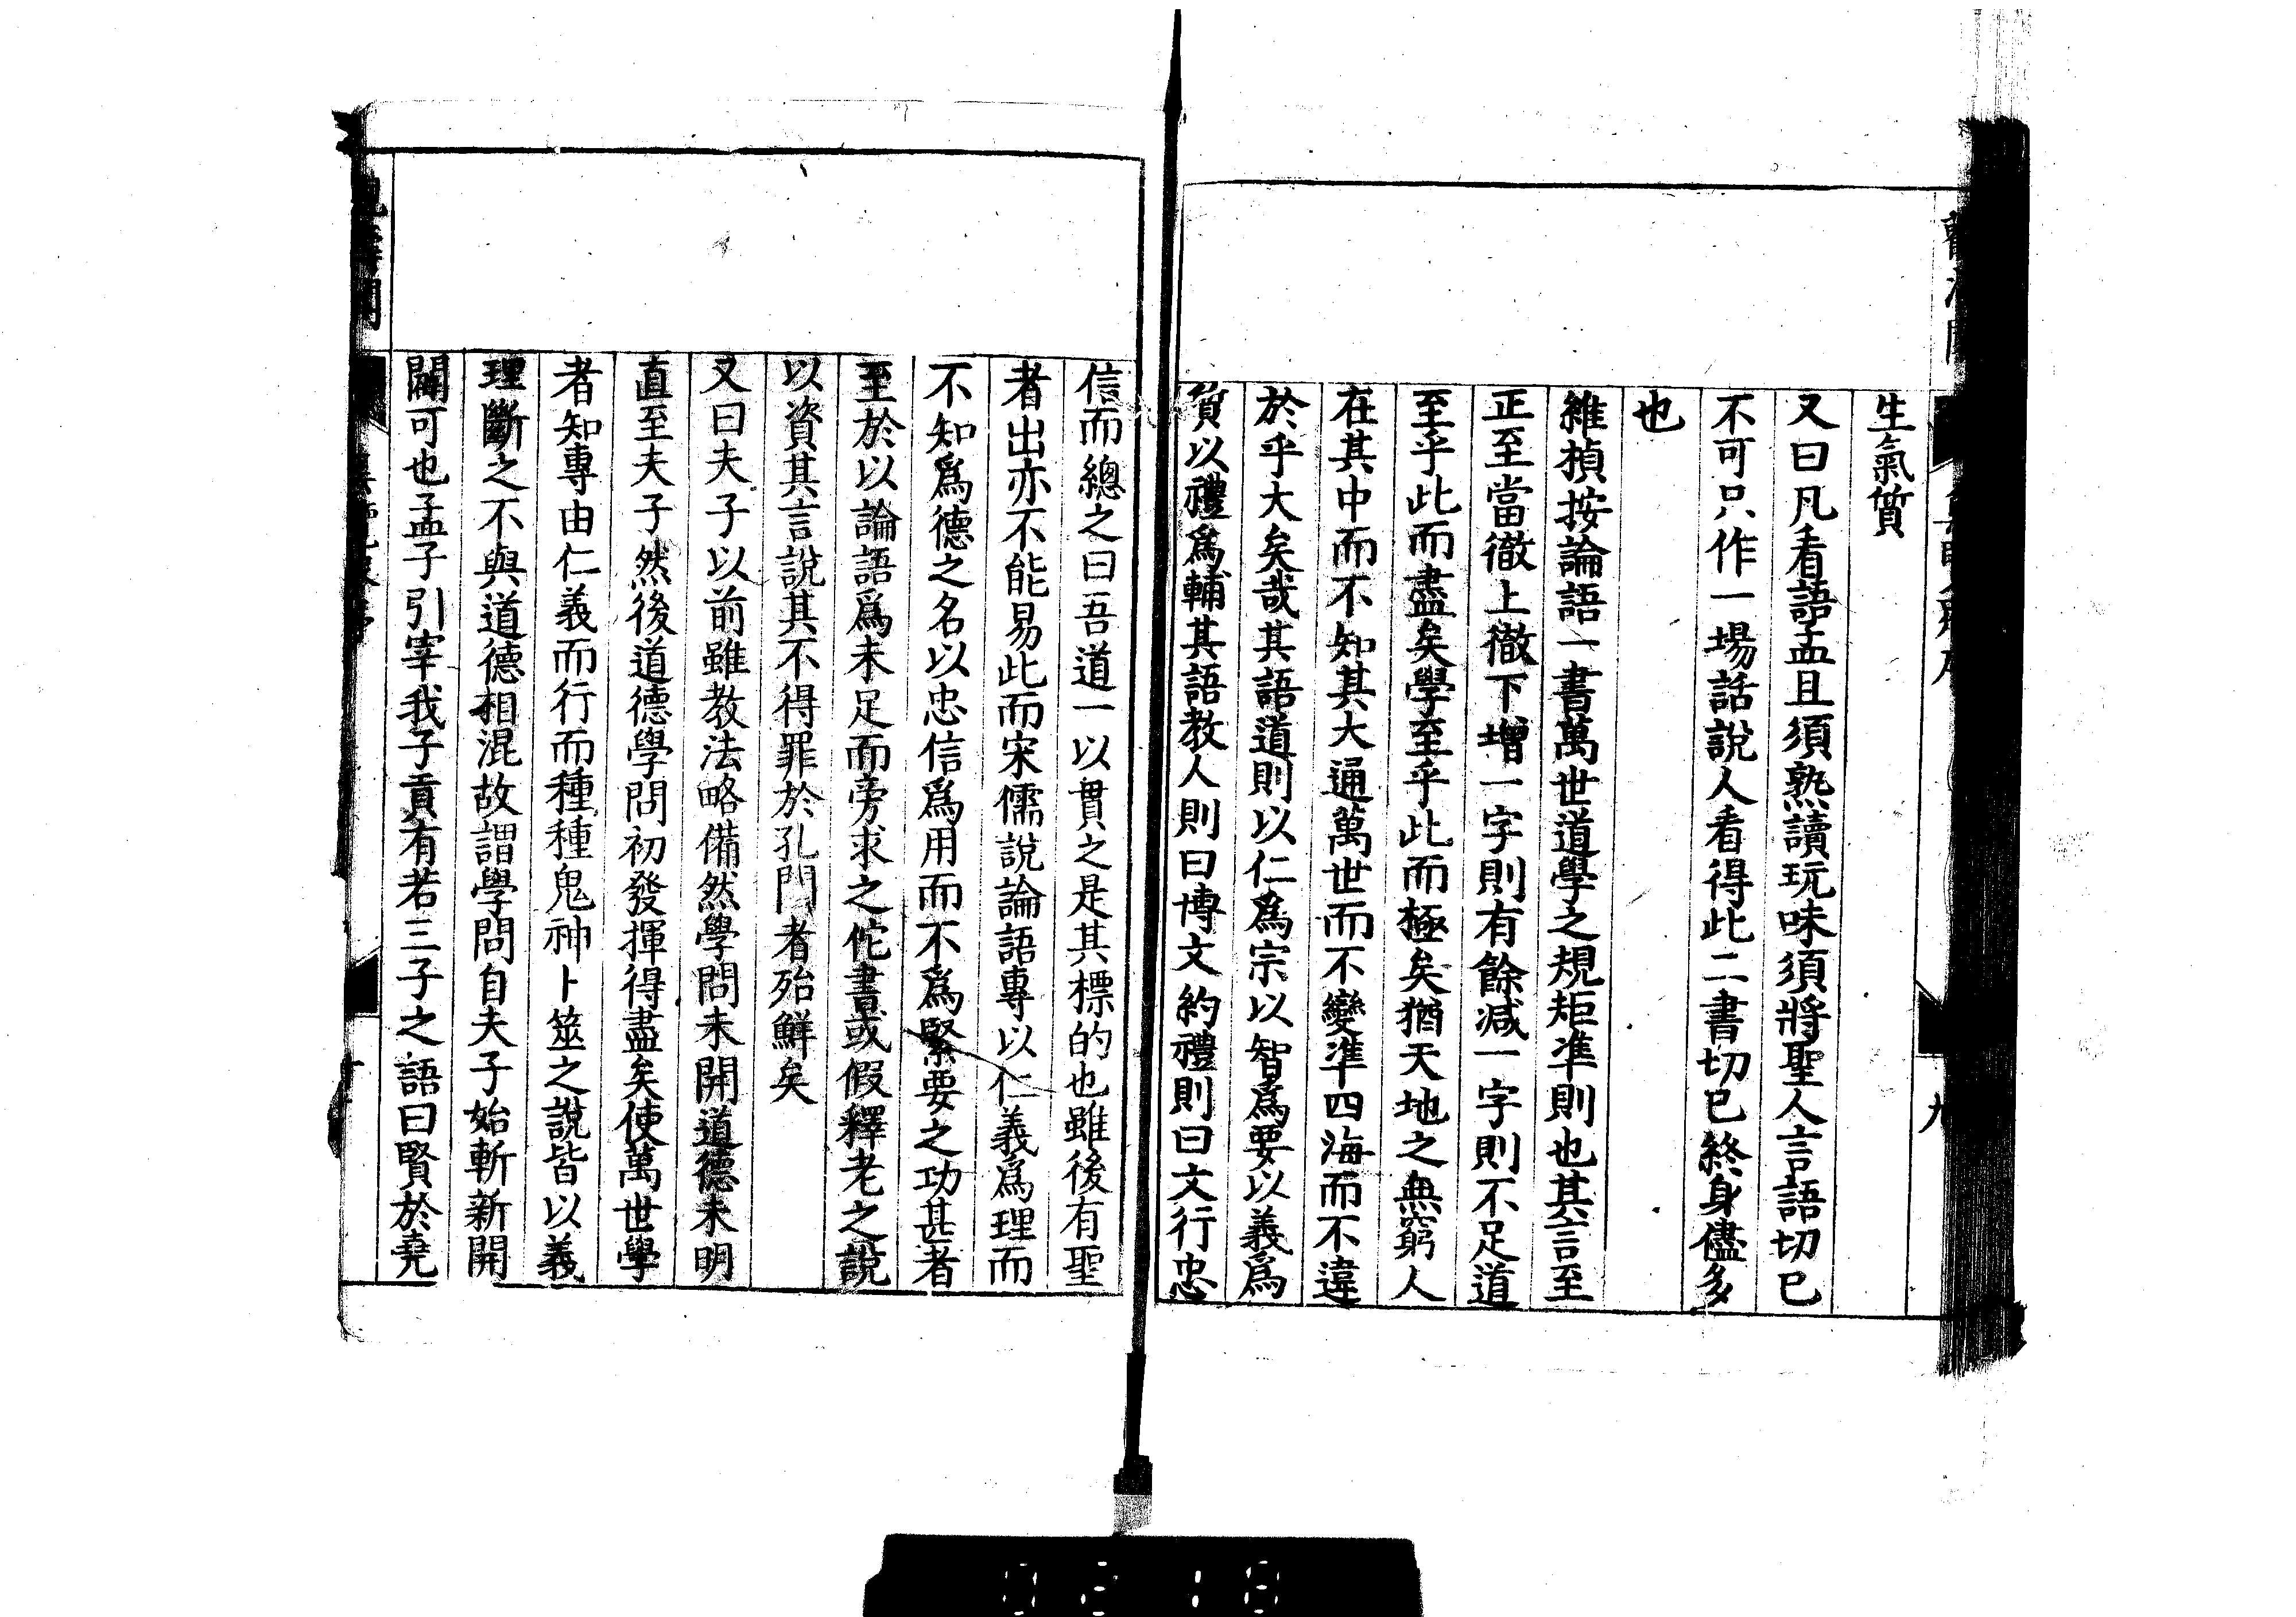 生氣質
又曰凡看語孟且須熟讀玩味須將聖人言語切已
不可只作一場話說人看得此二書切已終身儘多
也
維楨按論語一書萬世道學之規矩準則也其言至
正至當徹上徹下增一字則有餘減一字則不足道
至乎此而盡矣學至乎此而極矣猶天地之無窮人
在其中而不知其大通萬世而不變準四海而不違
於乎大矣哉其語道則以仁爲宗以智爲要以義爲
質以禮爲輔其語教人則曰博文約禮則曰文行忠
信而總之曰吾道一以貫之是其標的也雖後有聖
者出亦不能易此而宋儒說論語專以仁義爲理而
不知爲德之名以忠信爲用而不爲緊要之功甚者
至於以論語爲未足而旁求之佗書或假釋老之說
以資其言說其不得罪於孔門者殆鮮矣
又曰夫子以前雖教法略備然學問未開道德未明
直至夫子然後道德學問初發揮得盡矣使萬世學
者知專由仁義而行而種種鬼神卜筮之說皆以義
理斷之不與道德相混故謂學問自夫子始斬新開
闢可也孟子引宰我子貢有若三子之語曰賢於堯